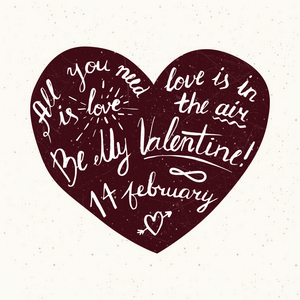 All you need
is love
love is in
the air
Be My Valentine!
14 february